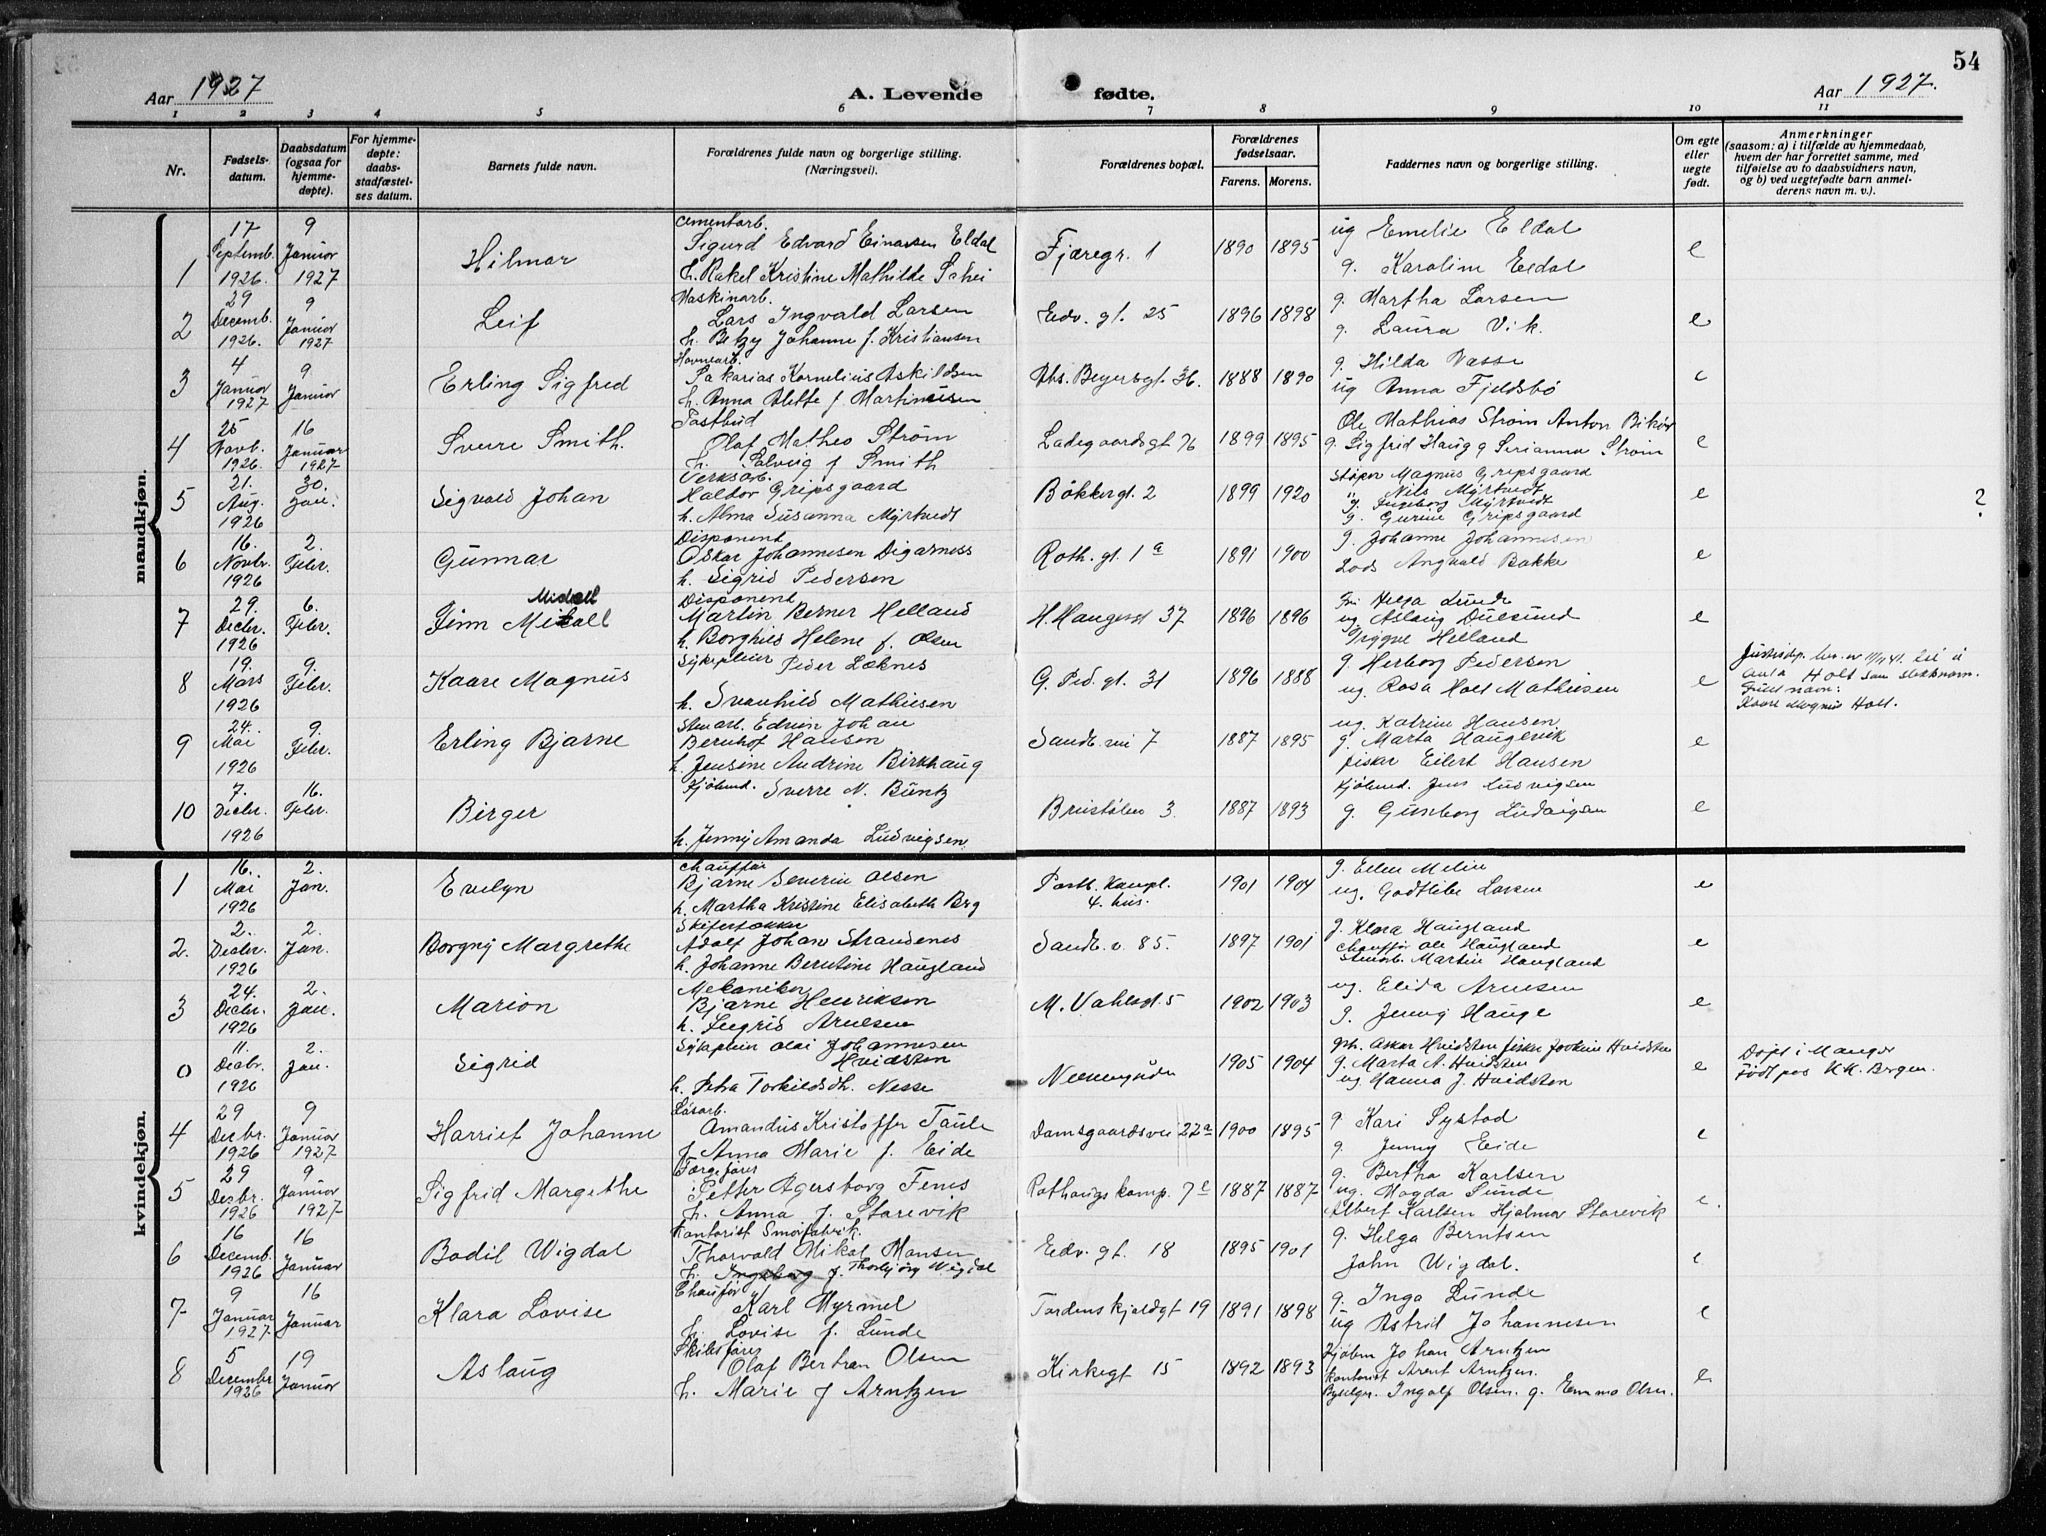 54
Aar 1927
A. Levende
fødte.
Aar 1927.
1 2 3 4 5 6 7 8 9 10 11
Nr.
Fødsels-
datum.
Daabsdatum
(ogsaa for
hjemme-
døpte).
For hjemme-
døpte:
daabs-
stadfæstel-
ses datum.
Barnets fulde navn.
Forældrenes fulde navn og borgerlige stilling.
(Næringsvei).
Forældrenes bopæl.
Forældrenes
fødselsaar.
Farens. Morens.
Faddernes navn og borgerlige stilling.
Om egte
eller
uegte
født.
Anmerkninger
(saasom: a) i tilfælde av hjemmedaab,
hvem der har forrettet samme, med
tilføielse av to daabsvidners navn,
og b) ved uegtefødte barn anmel-
derens navn m. v.).
mandkjøn.
1
17
Septemb.
1926.
9
Januar
1927
Hilmar
Cementarb.
Sigurd Edvard Einarsen Eldal
h. Rakel Kristine Mathilde Schei
Fjæregr. 1
1890 1895
ug Emelie Eldal
g. Karoline Eldal
e
2
29
Decemb.
1926.
9
Januar
1927
Leif
Maskinarb.
Lars Ingvald Larsen
h. Betzy Johanne f. Kristiansen
Edv. gt. 25
1896 1898
g. Martha Larsen
g. Laura Vik.
e
3
4
Januar
1927
9
Januar
Erling Sigfred
Havnearb.
Sakarias Kornelius Askildsen
h. Anna Alette f. Martinusen
Abs. Beyersgt. 36.
1888 1890
g. Hilda Vasse
ug Anna Fjeldsbø
e
4
25
Novb.
1926.
16
Januar
1927
Sverre Smith.
Postbud
Olaf Matheo Strøm
h. Solveig f Smith
Ladegaardsgt 76
1899 1895
Ole Mathias Strøm Anton
g. Sigfrid Haug g Serianna Strøm
e
5
21.
Aug.
1926
30.
Jan.
Sigvald Johan
Verksarb.
Haldor Gripsgaard
h. Alma Susanna Myrtvedt
Bøkkergt. 2
1899 1920
Støper Magnus Gripsgaard
" Nils Myrtvedt
g. Ingeborg Myrtvedt
g. Gurine Gripsgaard
e
?
6
16.
Novbr.
1926
2.
Febr.
Gunnar
Disponent
Oskar Johannesen Digarness
h. Sigrid Pedersen
Roth. gt. 1 a
1891 1900
g. Johanne Johannesen
Lods Angvald Bakke
e
7
29.
Decbr.
1926
6.
Febr.
Midtoll
Finn
Disponent
Martin Berner Helland
h. Borghild Helene f. Olsen
H. Haugesgt 37
1896 1896
Fru Helga Lunde
ug Aslaug Dulsund
Trygve Helland
e
8
19.
Mars
1926
9.
Febr.
Kaare Magnus
Sykepleier Peder Løknes
h. Svanhild Mathiesen
G. Ped. gt. 31
1896 1888
g. Herborg Pedersen
ug. Rosa Holt Mathiesen
e
Justisdep. bev. av 11/1 41. til å
anta Holt som slektsnavn.
Fullt navn:
Kaare Magnus Holt.
9
24.
Mai
1926
9.
Febr.
Erling Bjarne
Stenarb. Edvin Johan
Bernhof Hansen
h. Jensine Andrine Birkhaug
Sandv. vei 7
1887 1895
ug. Katrine Hansen
g. Marta Haugevik
fisker Eilert Hansen
e
10
7.
Decbr.
1926
16.
Febr.
Birger
Kjøbmd. Sverre N. Buntz
h. Jenny Amanda Ludvigsen
Brustølen 3.
1887 1893
Kjøbmd. Jens Ludvigsen
g. Gunborg Ludvigsen
e
kvindekjøn.
1
16.
Mai
1926
2.
Jan.
Evelyn
Chauffør
Bjarne Severin Olsen
h. Martha Kristine Elisabeth Berg
4. hus.
1901 1904
g. Ellen Melin
ug. Godtlibe Larsen
e
2.
2.
Decbr.
1926
2.
Jan.
Borgny Margrethe
Skifertækker
Adolf Johan Strandenes
h. Johanne Berntine Haugland
Sandv. v. 85.
1897 1901
g. Klara Haugland
Chauffør Ole Haugland
Stenarb. Martin Haugland
e
3
24.
Decbr.
1926
2.
Jan.
Marion
Mekaniker
Bjarne Henriksen
h. Ingrid Arnesen
M. Vahlsgt. 5
1902 1903
ug. Elida Arnesen
g. Jenny Hauge
e
0
11.
Decbr.
1926
2.
Jan.
Sigrid
Sykepleier Olai Johannesen
Hvidsten
h. Petra Torkildsdt. Nesse
1905 1904
Oskar Hvidsten fisker Joakim Hvidsten
g. Marta A. Hvidsten
ug Hanna J. Hvidsten
e
Døpt i Manger
Født paa KK. Bergen.
4
29
Decbr.
1926
9
Januar
1927
Harriet Johanne
Løsarb.
Amandus Kristoffer Taule
f. Anna Marie f. Eide
Damsgaardsvei 22a
1900 1895
g Kari Systad
g. Jenny Eide
e
5
29
Desbr.
1926
9
Januar
1927
Sigfrid Margrethe
Færgefører
Petter Agersborg Fenes
h. Anna f. Storevik
Rothaugskamp. 7 c
1887 1887
g. Bertha Karlsen
ug. Magda Sunde
Albert Karlsen Hjalmar Storevik
e.
6
16
Decemb.
1926
16
Januar
Bodil Wigdal
Kontorist Smørfabrik.
Thorvald Mikal Monsen
h. Ingeborg f. Thorbjørg Wigdal
Edv. gt. 18
1895 1901
g. Helga Berntsen
John Wigdal.
e
7
9
Januar
1927
16
Januar
Klara Lovise
Chaufør
Karl Myrmel
h. Lovise f. Lunde
Tordenskjoldgt 19
1891 1898
g. Inga Lunde
ug Astrid Johannesen
e
8
5
Decembr
1926
19
Januar
Aslaug
Skibsfører
Olaf Bertran Olsen
h. Marie f Arntzen
Kirkegt 15
1892 1893
Kjøbm Johan Arntzen
Kontorist Arent Arntzen.
Ingolf Olsen. g. Emma Olsen.
e